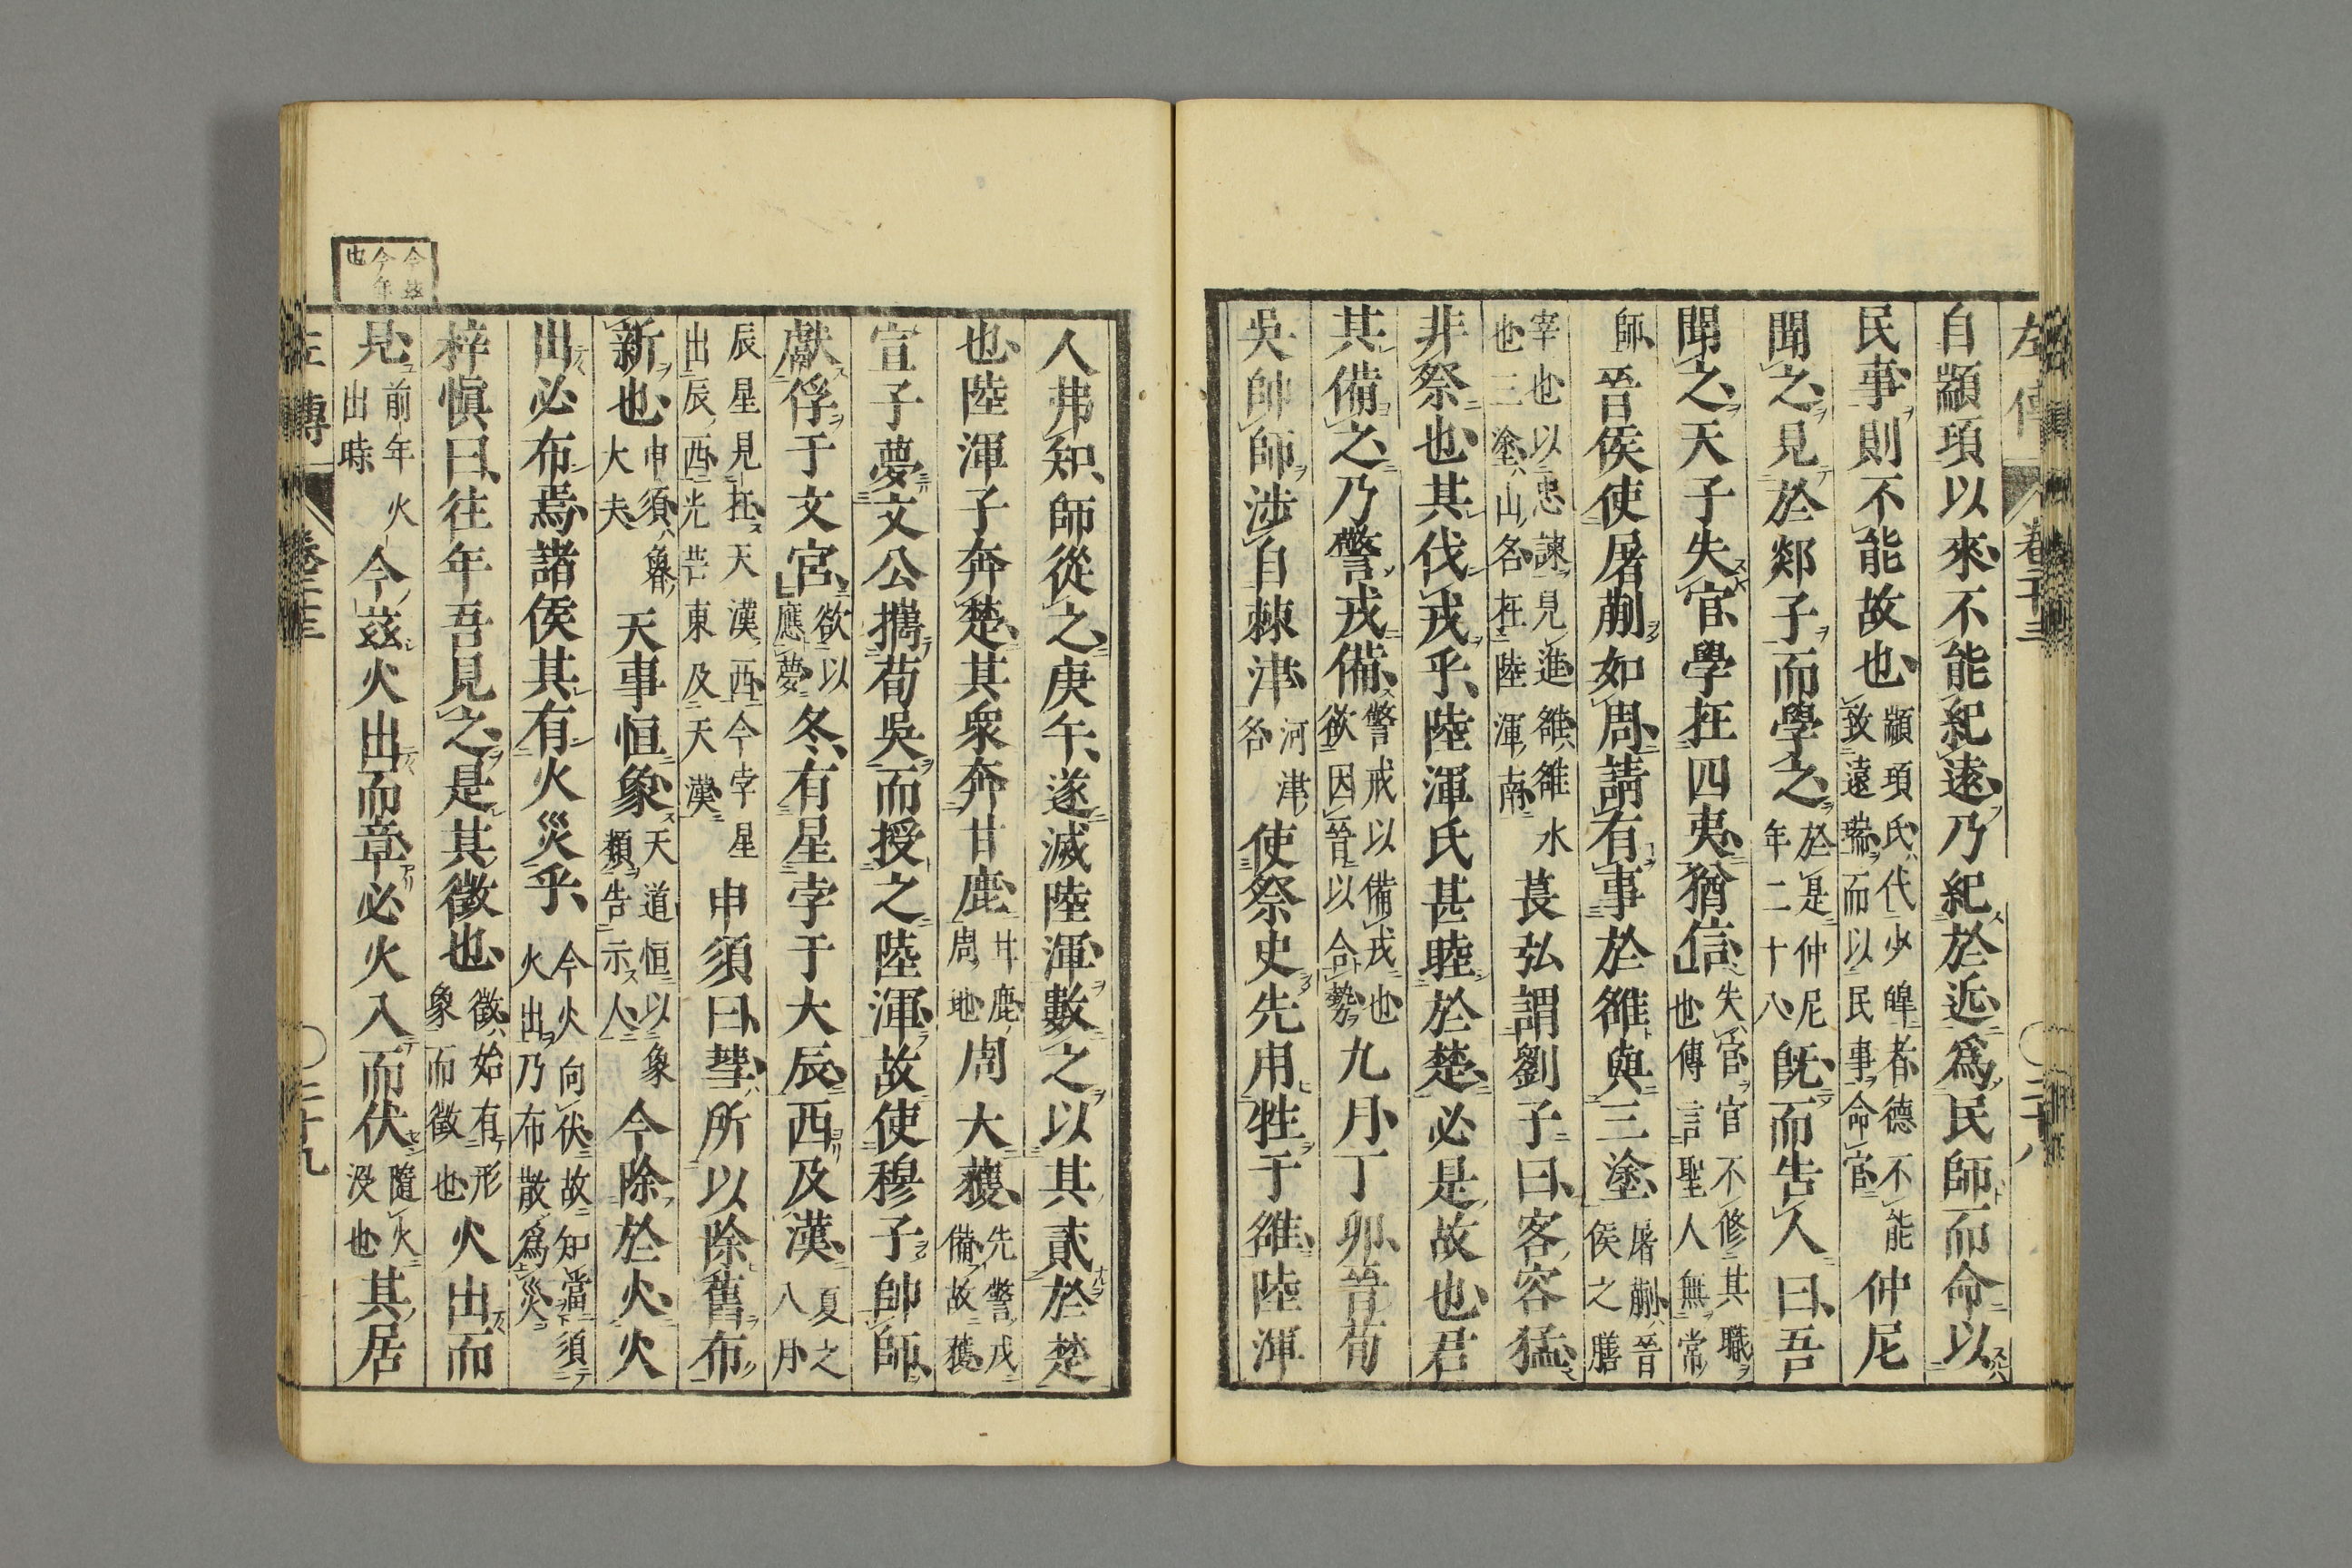 左傳 卷二十三 〇三十八
自顓頊以來不能紀遠乃紀於近爲民師而命以
民事則不能故也顓頊氏代少皞者德不能致遠瑞而以民事命官仲尼
聞之見於郯子而學之於是仲尼年二十八既而告人曰吾
聞之天子失官學在四夷猶信失官官不修其職也傳言聖人無常
師晉侯使屠蒯如周請有事於雒與三塗屠蒯晉侯之膳
宰也以忠諫見進雒雒水也三塗山名在陸渾南萇弘謂劉子曰客容猛
非祭也其伐戎乎陸渾氏甚睦於楚必是故也君
其備之乃警戎備警戒以備戎也欲因晉以合勢九月丁卯晉荀
吳帥師涉自棘津河津名使祭史先用牲于雒陸渾
人弗知師從之庚午遂滅陸渾數之以其貳於楚
也陸渾子奔楚其衆奔甘鹿甘鹿周地周大獲先警戎備故獲
宣子夢文公攜荀吳而授之陸渾故使穆子帥師
獻俘于文宮欲以應夢冬有星孛于大辰西及漢夏之八月
辰星見在天漢西今孛星出辰西光芒東及天漢申須曰彗所以除舊布
新也申須魯大夫天事恒象天道恒以象類告示人今除於火火
出必布焉諸侯其有火災乎今火向伏故知當須火出乃布散爲災
梓慎曰往年吾見之是其徵也徵始有形象而徵也火出而
見前年火出時今茲火出而章必火入而伏隨火沒也其居
今茲
今年
也
左傳 卷二十三 〇三十九